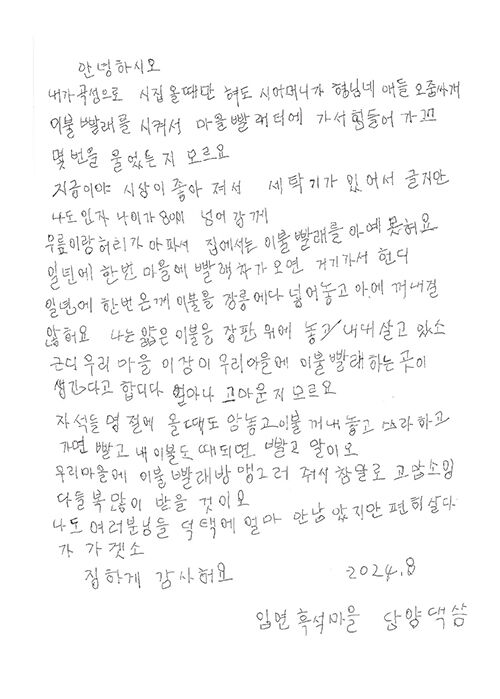 안녕하시오
내가 곡성으로 시집 올때만 혀도 시어머니가 형님네 애들 오줌싸게
이불 빨래를 시켜서 마을 빨래터에 가서 힘들어 가꼬
몇번을 울었는지 모르요
지금이야 시상이 좋아 져서 세탁기가 있어서 글지만
나도 인자 나이가 80이 넘어 감께
무릎이랑 허리가 아파서 집에서는 이불 빨래를 아예 못허요
일년에 한번 마을에 빨래차가 오면 거기가서 헌디
일년에 한번 온게 이불을 장롱에다 넣어놓고 아예 꺼내길
않허요 나는 얇은 이불을 장판 위에 놓고 내내 살고 있소
근디 우리 마을 이장이 우리마을에 이불 빨래 하는 곳이
생긴다고 합디다 얼마나 고마운지 모르요
자석들 명절에 올때도 암놓고 이불 꺼내 놓고 쓰라하고
가면 빨고 내 이불도 때되면 빨고 알이오
우리마을에 이불 빨래방 맹그러 줘서 참말로 고맙소잉
다들 복 많이 받을 것이오
나도 여러분님들 덕택에 얼마 안남았지만 편히 살다
가 가겟소
집하게 감사허요 2024.8
입면 흑석마을 담양댁 씀